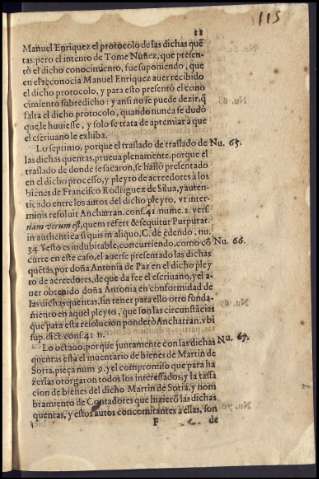 115
11
Manuel Enriquez el protocolo de las dichas quē
tas, pero el intento de Tome Nuñez, que presen-
tò el dicho conocimiento, fue suponiendo, que
en el reconocia Manuel Enriquez auer recibido
el dicho protocolo, y para esto presentò el cono
cimiento sobredicho: y ansi no se puede dezir, q̄
falta el dicho protocolo, quando nunca se dudò
que le huuiesse, y solo se trata de apremiar à que
el escriuano le exhiba.
Lo septimo, porque el traslado de traslado de Nu. 65.
las dichas quentas, prueua plenamente, porque el
traslado de donde se sacaron, se hallò presentado
en el dicho processo, y pleyto de acreedores à los
bienes de Francisco Rodriguez de Silua, y autēn-
ticado entre los autos del dicho pleyto, vt inter-
minis resoluit Ancharran. cons. 41 nume. 2. versi
tum verum est, quem refert & sequitur Purpurat.
in authentic. si quis in aliquo, C. de edendo. nu.
34. Y esto es indubitable, concurriendo, como cō Nu. 66.
curre en este caso, el auerse presentado las dichas
quētas, por doña Antonia de Paz en el dicho pley
to de acreedores, de que da fee el escriuano, y el a-
uer obtenido doña Antonia en conformidad de
las dichas quentas, sin tener para ello otro funda-
miento en aquel pleyto, que son las circunstācias
que para esta resolucion ponderò Ancharran. vbi
sup. dict. cons. 41. n.
Lo octauo, porque juntamente con las dichas Nu. 67.
quentas està el inuentario de bienes de Martin de
Soria, pieça num 9. y el compromiso que para ha
zerlas otorgaron todos los interessados, y la tassa
cion de bienes del dicho Martin de Soria, y nom
bramiento de Contadores que hizierō las dichas
quentas, y estos autos concomitantes à ellas, son
F de